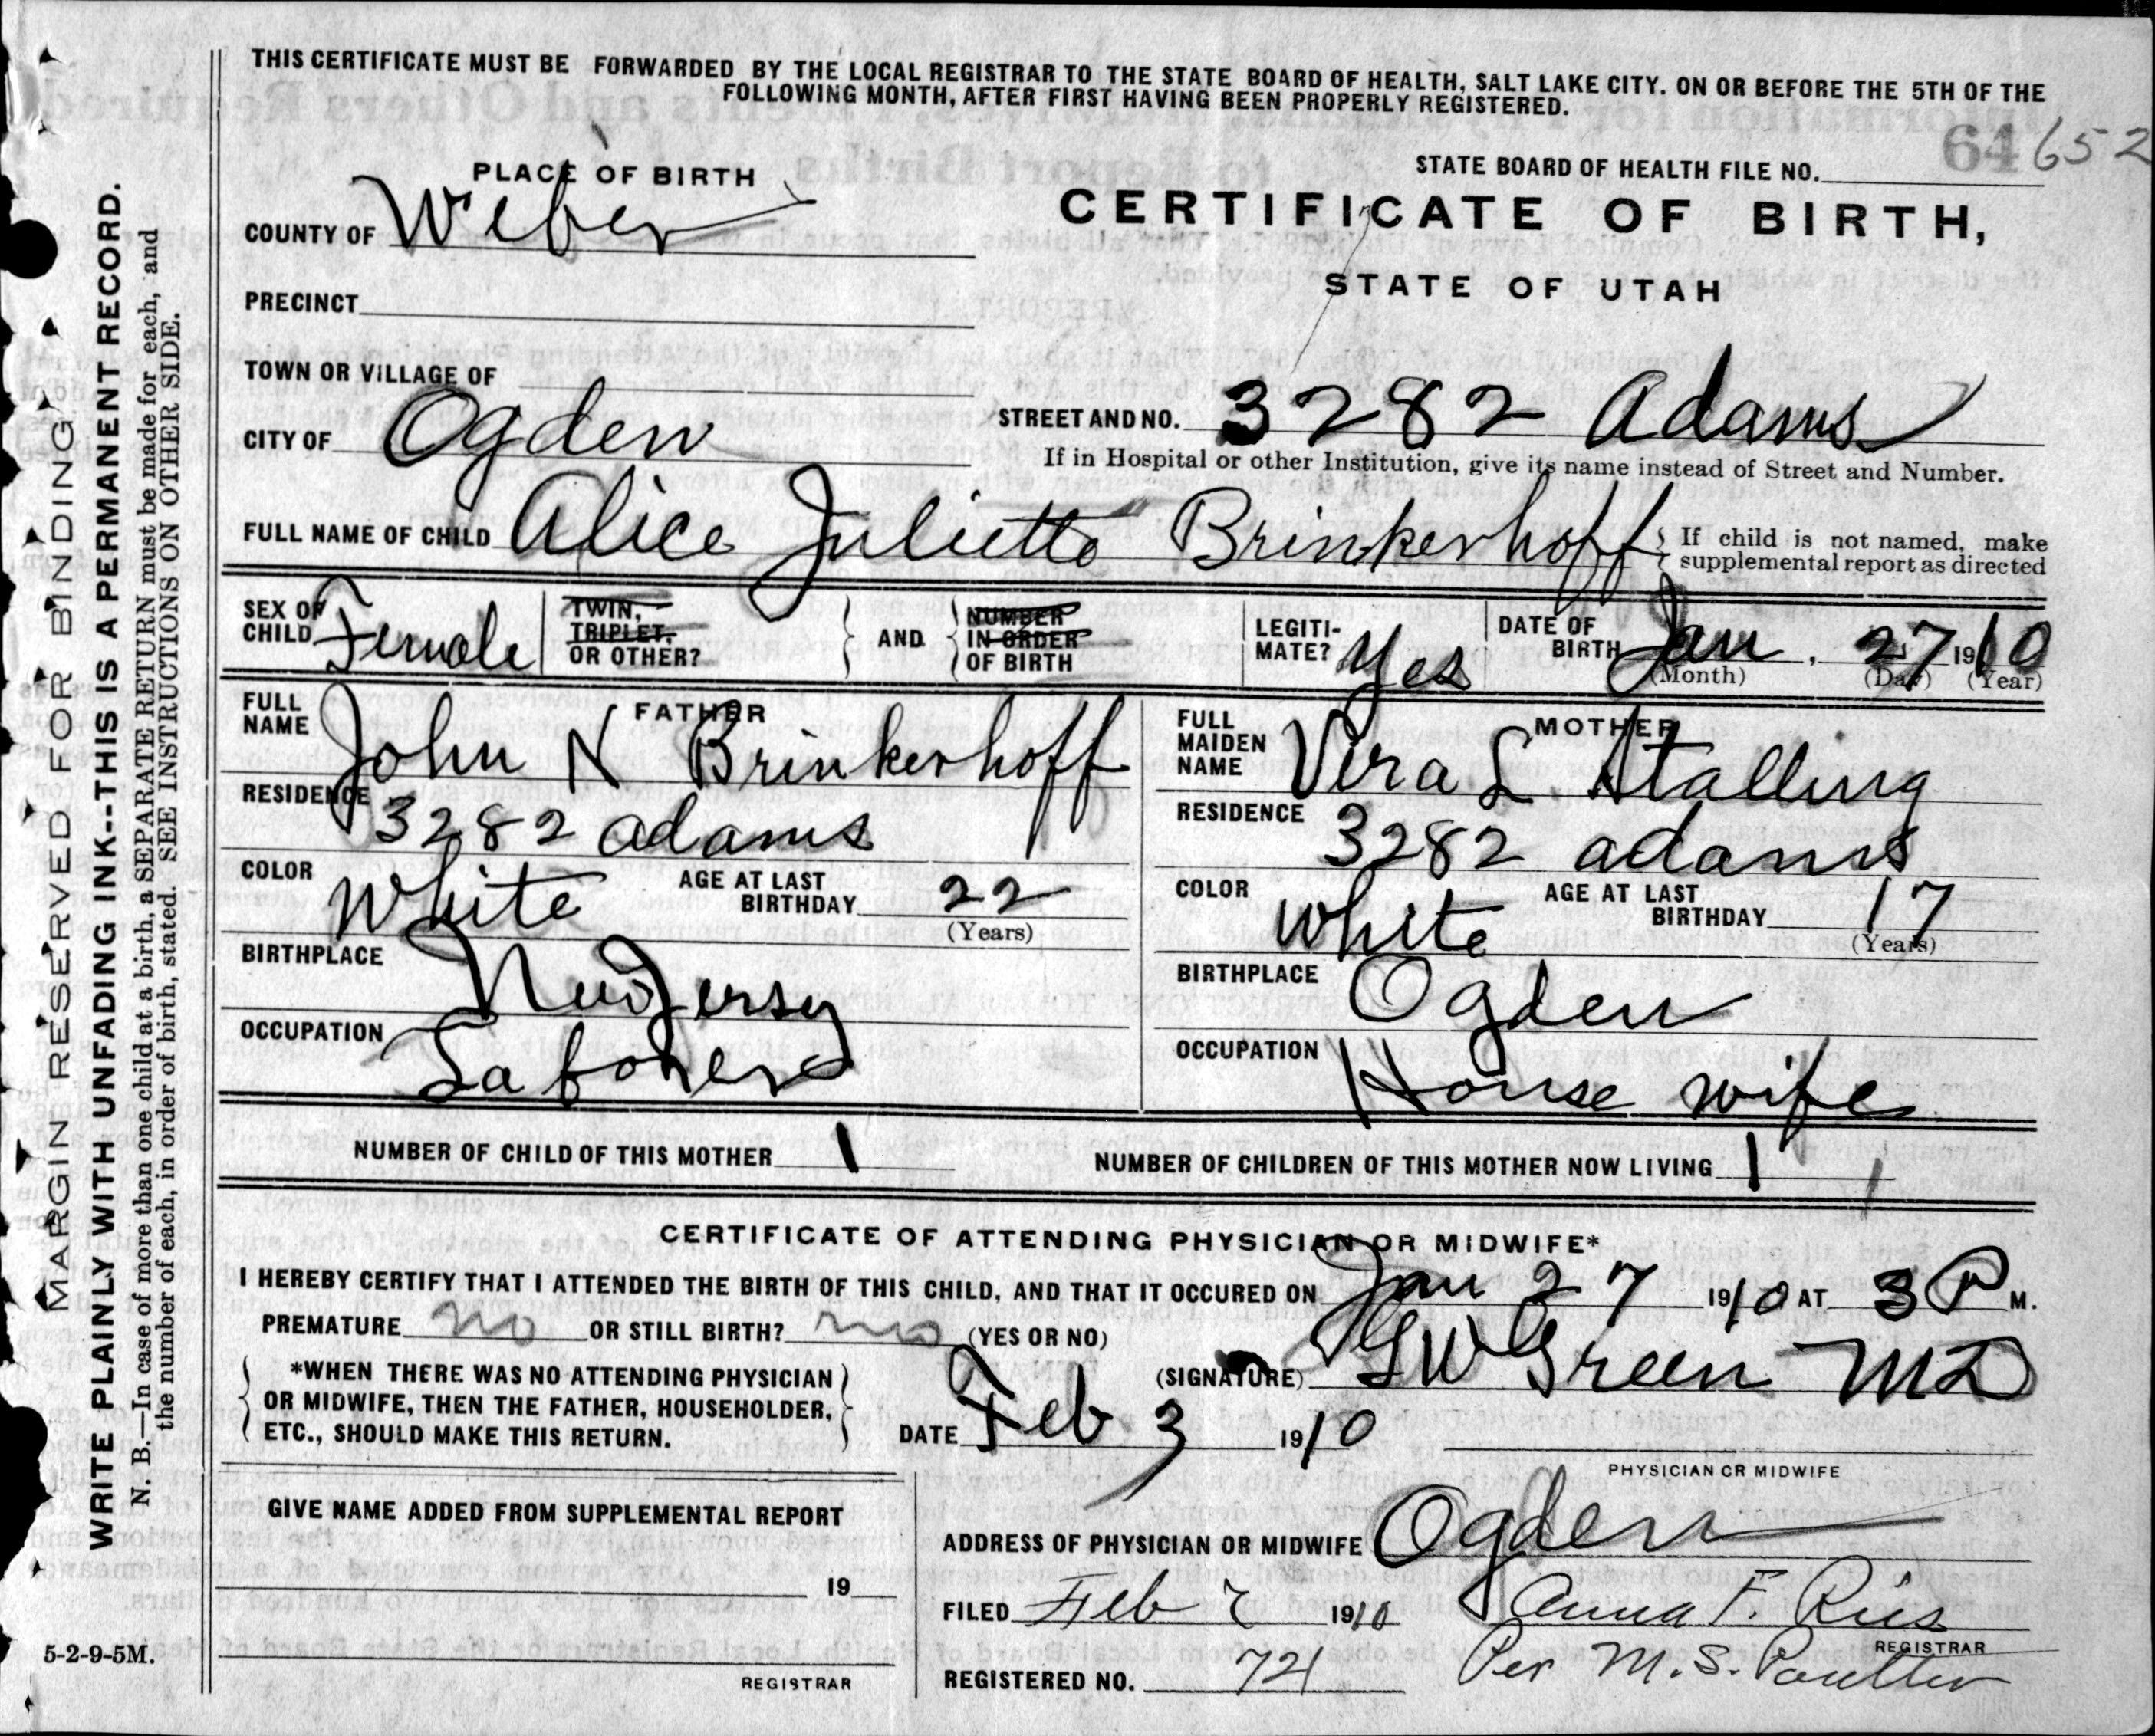 THIS CERTIFICATE MUST BE FORWARDED BY THE LOCAL REGISTRAR TO THE STATE BOARD OF HEALTH, SALT LAKE CITY. ON OR BEFORE THE 5TH OF THE
FOLLOWING MONTH, AFTER FIRST HAVING BEEN PROPERLY REGISTERED.
64 652
PLACE OF BIRTH
STATE BOARD OF HEALTH FILE NO.
COUNTY OF Weber
CERTIFICATE OF BIRTH,
STATE OF UTAH
PRECINCT
TOWN OR VILLAGE OF
CITY OF Ogden
STREET AND NO. 3282 Adams
If in Hospital or other Institution, give its name instead of Street and Number.
FULL NAME OF CHILD Alice Juliette Brinkerhoff
If child is not named, make
supplemental report as directed
SEX OF
CHILD Female
TWIN,
TRIPLET,
OR OTHER?
AND
NUMBER
IN ORDER
OF BIRTH
LEGITI-
MATE? Yes
DATE OF
BIRTH Jan. 27 1910
(Month) (Day) (Year)
FATHER
FULL
NAME John N Brinkerhoff
RESIDENCE 3282 adams
COLOR White
AGE AT LAST
BIRTHDAY 22
(Years)
BIRTHPLACE New Jersey
OCCUPATION Laborer
MOTHER
FULL
MAIDEN
NAME Vera L Stalling
RESIDENCE 3282 adams
COLOR White
AGE AT LAST
BIRTHDAY 17
(Years)
BIRTHPLACE Ogden
OCCUPATION House wife
NUMBER OF CHILD OF THIS MOTHER 1
NUMBER OF CHILDREN OF THIS MOTHER NOW LIVING 1
CERTIFICATE OF ATTENDING PHYSICIAN OR MIDWIFE*
I HEREBY CERTIFY THAT I ATTENDED THE BIRTH OF THIS CHILD, AND THAT IT OCCURED ON Jan 27 1910 AT 3 P M.
PREMATURE no OR STILL BIRTH? no (YES OR NO)
*WHEN THERE WAS NO ATTENDING PHYSICIAN
OR MIDWIFE, THEN THE FATHER, HOUSEHOLDER,
ETC., SHOULD MAKE THIS RETURN.
(SIGNATURE) GW Green MD
DATE Feb 3 1910
PHYSICIAN OR MIDWIFE
GIVE NAME ADDED FROM SUPPLEMENTAL REPORT
19
REGISTRAR
ADDRESS OF PHYSICIAN OR MIDWIFE Ogden
FILED Feb 7 1910 Anna F. Ries
REGISTRAR
REGISTERED NO. 721 Per M. S. Poulter
5-2-9-5M.
MARGIN RESERVED FOR BINDING
WRITE PLAINLY WITH UNFADING INK--THIS IS A PERMANENT RECORD.
N. B.—In case of more than one child at a birth, a SEPARATE RETURN must be made for each, and
the number of each, in order of birth, stated. SEE INSTRUCTIONS ON OTHER SIDE.